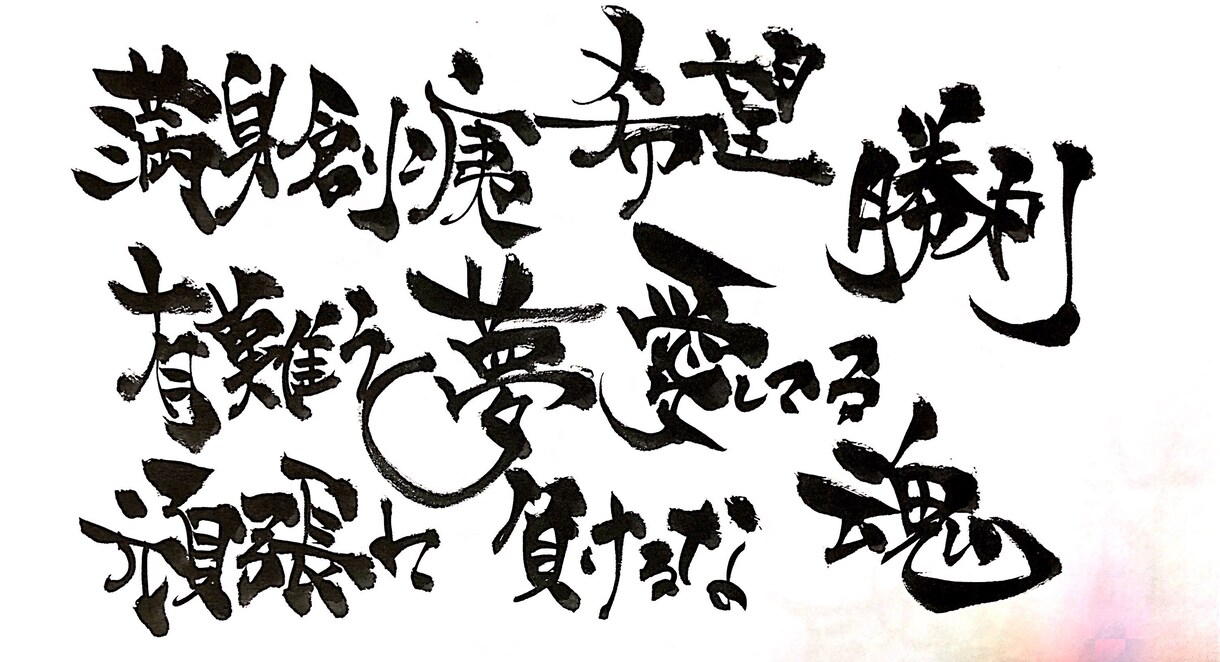 満身創痍
希望
勝利
有難う
夢
愛してる
頑張れ
負けるな
魂